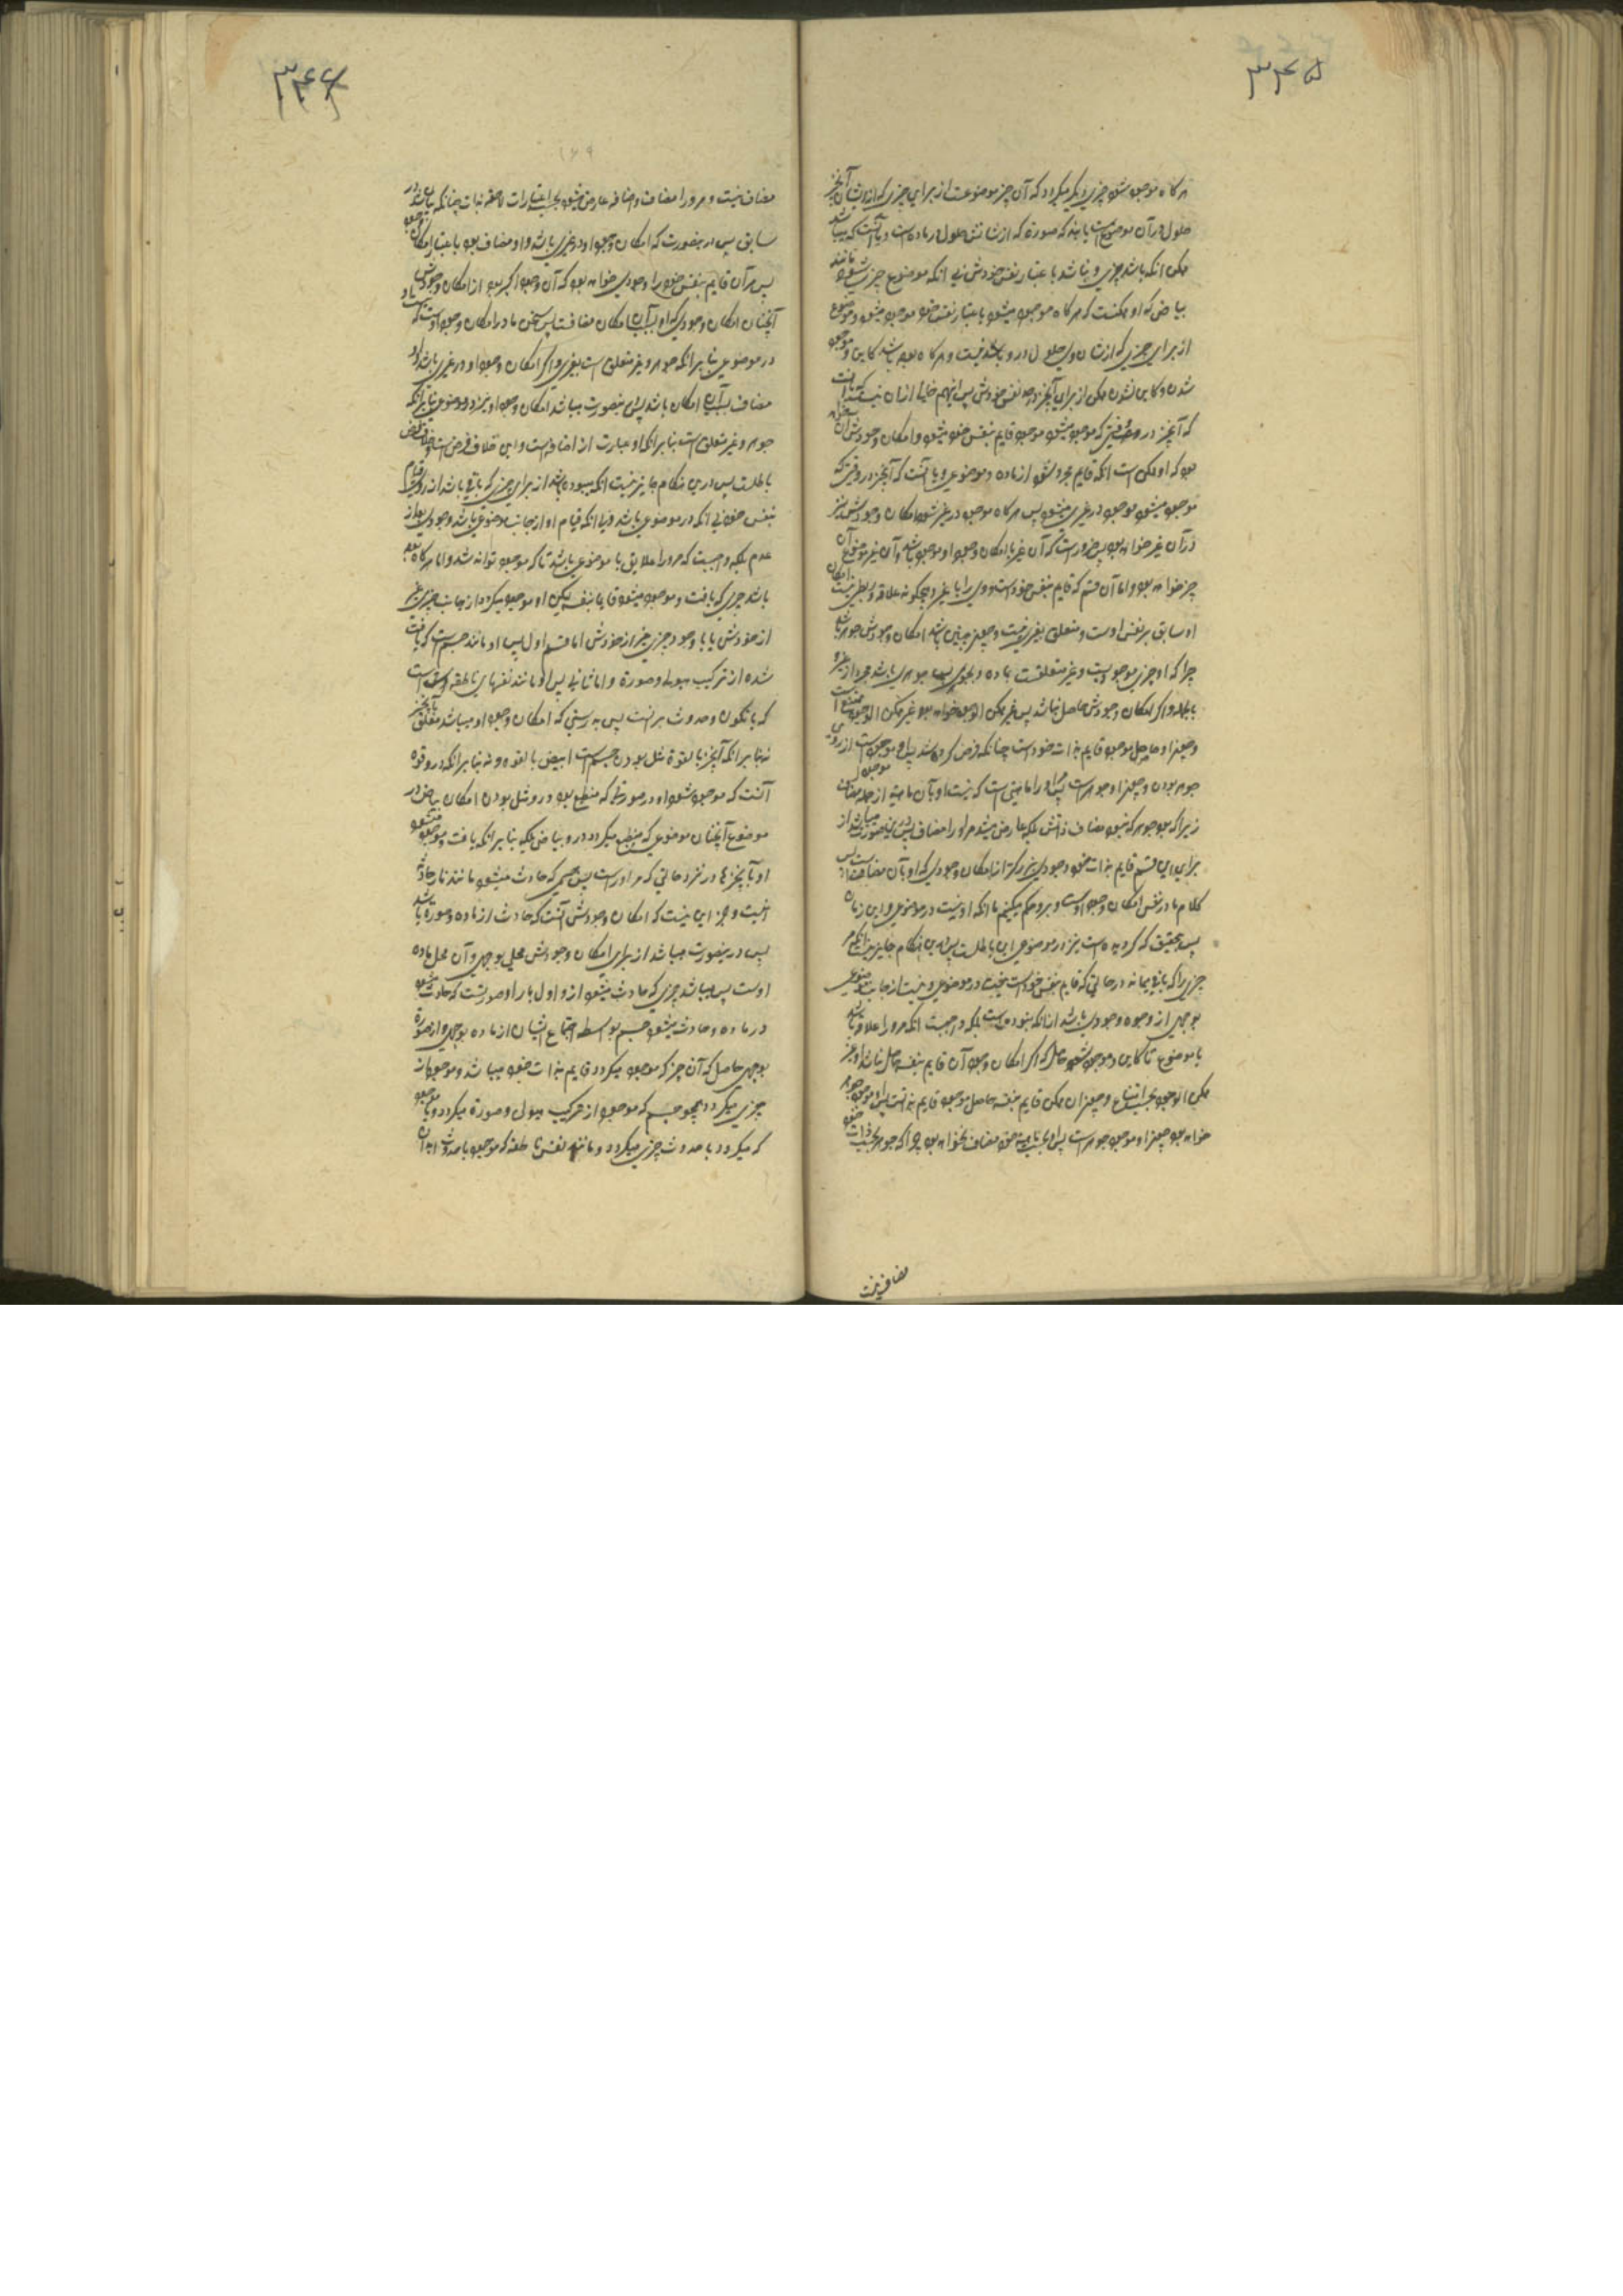 ۳۴۵
هرگاه موجود شود چیزی دیگر میگردد که آن چیز موضوعست از برای چیزی که از شان آنچیز
حلول در آن موضوع است یا بمنزله صورة که از شانش حلول در ماده است و یا آنست که میباشد
ممکن آنکه باشد چیزی و نباشد باعتبار نفس خودش بی آنکه موضوع چیزی شود مانند
بیاض که او ممکنست که هرگاه موجود میشود باعتبار نفس خود موجود میشود و موضوع
از برای چیزی که از شان وی حلول در و باشد نیست و هرگاه بوده باشد کاین و موجود
شدن و کاین نشدن ممکن از برای آنچیز در حد نفس خودش پس اینهم خالی از آن نیست
که آنچیز در وقتی که موجود میشود موجود قایم بنفس خود میشود و امکان وجودش آن
بود که او ممکن است آنکه قایم مجرد شود از ماده و موضوعی و یا آنست که آنچیز در وقتی که
موجود میشود موجود در غیری میشود پس هرگاه موجود در غیر شود امکان وجودش نیز
در آن غیر خواهد بود پس ضرور است که آن غیر با امکان وجود او موجود باشد و آن غیر موضوع آن
چیز خواهد بود و اما آن قسم که قایم بنفس خود است و وی را با غیر هیچگونه علاقه و ربطی نیست امکان
او سابق بر نفس اوست و متعلق بغیری نیست و چیز چنین باشد امکان وجودش جوهر باشد
چرا که او چیزی موجودیست و غیر متعلقست بماده و بجوهری پس جوهری باشد مجرد از غیر و
بالجمله و اگر امکان وجودش حاصل نباشد پس غیر ممکن الوجود خواهد بود و غیر ممکن الوجود ممتنع است
و چیز او حاصل موجود قایم بذات خود است چنانکه فرض کرده شد پس او موجود است از روی
جوهر بودن و چیز او جوهر است پس او را ماهیتی است که نیست او بآن ماهیة از جمله مضاف
زیرا که بود جوهر که نبود مضاف ذاتش بلکه عارض میشد مر او را مضاف پس درینصورت میباشد از
برای این قسم قایم بذات خود وجودی بزرگتر از امکان وجودی که او بآن مضافست پس
کلام ما در نفس امکان وجود اوست و برو حکم میکنیم ما آنکه او نیست در موضوعی و این زمان
پس تحقیق که گردیده است نیز در موضوعی این باطلست پس درین هنگام جایز نیست آنکه مر
چیزی را که باقی بماند در حالتی که قایم بنفس خود است نیست در موضوعی و نیست از جانب موضوعی
بوجهی از وجوه وجودی باشد از آنکه نبوده است بلکه واجبست آنکه مر او را علاقه باشد
با موضوع تا کاین و موجود شود حاصل که اگر امکان وجود آن قایم بنفسه حاصل نباشد او غیر
ممکن الوجود بحسب امتناع و چیز آن ممکن قایم بنفسه حاصل موجود قایم بذاتست پس او موجود جوهر
خواهد بود و چیز او موجود جوهر است پس او بحسب ماهیت خود مضاف نخواهد بود چرا که جوهر بحسب ذات خود
مضاف نیست
۳۴۶
۱۶۹
مضاف نیست و مر او را مضاف و اضافه عارض میشود بحسب اعتبارات لاحقه بذات چنانکه بیان شد در
سابق پس درینصورت که امکان وجود او در غیری باشد و او مضاف بود باعتبار امکان وجود
پس مر آن قایم بنفس خود را وجودی خواهد بود که آن وجود اکبر بود از امکان وجودش
آنچنان امکان وجودی که او بسبب آن امکان مضافست پس سخن ما در امکان وجود اوست که
در موضوعی بنابر آنکه جوهر و غیر متعلق است بغیری و اگر امکان وجود او در غیری باشد و او
مضاف بسبب آن امکان باشد پس درینصورت میباشد امکان وجود او نیز در موضوعی بنابر آنکه
جوهر و غیر متعلق است بنابر آنکه او عبارت از اضافه است و این خلاف فرض است و خلاف فرض
باطلست پس درین هنگام جایز نیست آنکه بوده باشد از برای چیزی که باقی باشد از روی قیام
بنفس خود بی آنکه در موضوعی باشد و بی آنکه قیام او از جانب موضوعی باشد وجودی بعد از
عدم بلکه واجبست که مر او را علایق با موضوعی باشد تا که موجود تواند شد و اما هرگاه بوده
باشد چیزی که یافت و موجود میشود قایما بنفسه لیکن او موجود میگردد از جانب چیزی غیر
از خودش یا با وجود چیزی غیر از خودش اما قسم اول پس او مانند جسم است که یافت
شده از ترکیب هیولی و صورة و اما ثانی پس او مانند نفسهای ناطقه است
که با تکون و حدوث بدنست پس بدرستی که امکان وجود او میباشد متعلق بآنچیز
نه بنابر آنکه آنچیز بالقوة مثل بودن جسم است ابیض بالقوه و نه بنابر آنکه در و قوه
آنست که موجود شود او در صورتی که منطبع بود در و مثل بودن امکان بیاض در
موضوع آنچنان موضوعی که منطبع میگردد در و بیاض بلکه بنابر آنکه یافت و موجود میشود
او با آنچیزها در نزد حالتی که مر او راست پس جسمی که حادث میشود مانند نار حادث
نیست و جز این نیست که امکان وجودش آنست که حادث از ماده و صورة باشد
پس درینصورت میباشد از برای امکان وجودش محلی بوجهی و آن محل ماده
اوست پس میباشد چیزی که حادث میشود از و اول بار او صورتست که حادث میشود
در ماده و حادث میشود جسم بواسطه اجتماع ایشان از ماده بوجهی و از صورة
بوجهی حاصل که آن چیز که موجود میگردد قایم بذات خود میباشد و موجود از
چیزی میگردد همچو جسم که موجود از ترکیب هیولی و صورة میگردد و یا موجود
که میگردد با حدوث چیزی میگردد و مانند نفس ناطقه که موجود با حدوث ابدان